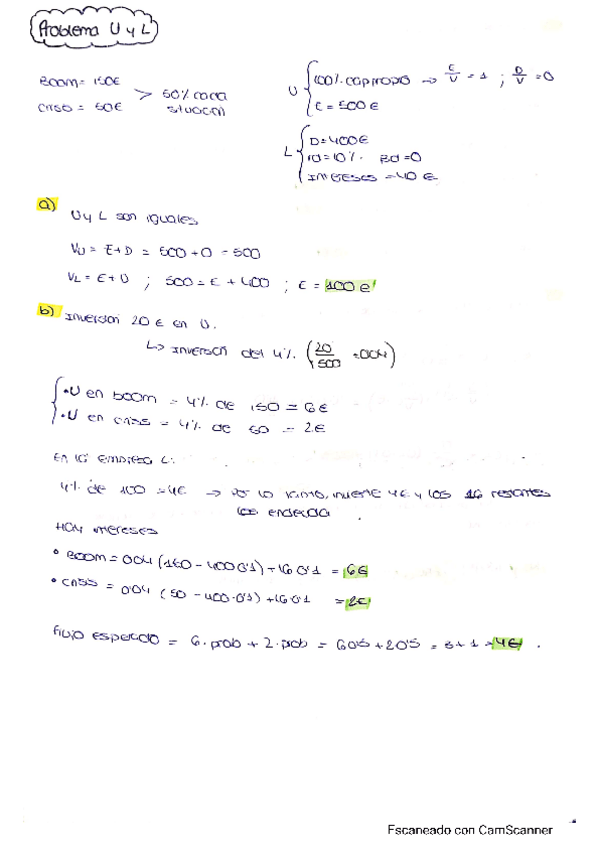 Problema U y L
BOOM = 150€
CRISIS = 50€ > 50% cada situación
U { 100% cap propio → E/V = 1 ; D/V = 0
E = 500€
L { D = 400€
rd = 10% Bd = 0
INTERESES = 40€
a) U y L son iguales
Vu = E + D = 500 + 0 = 500
VL = E + D ; 500 = E + 400 ; E = 100€
b) Inversión 20€ en U.
↳ Inversión del 4% (20/500 = 0'04)
• U en boom = 4% de 150 = 6€
• U en crisis = 4% de 50 = 2€
En la empresa L:
4% de 100 = 4€ → Por lo tanto, invierte 4€ y los 16 restantes
los
Hay intereses
• BOOM = 0'04 (150 - 400·0'1) + 16·0'1 = 6€
• CRISIS = 0'04 (50 - 400·0'1) + 16·0'1 = 2€
Flujo esperado = 6·prob + 2·prob = 6·0'5 + 2·0'5 = 3 + 1 = 4€.
Escaneado con CamScanner